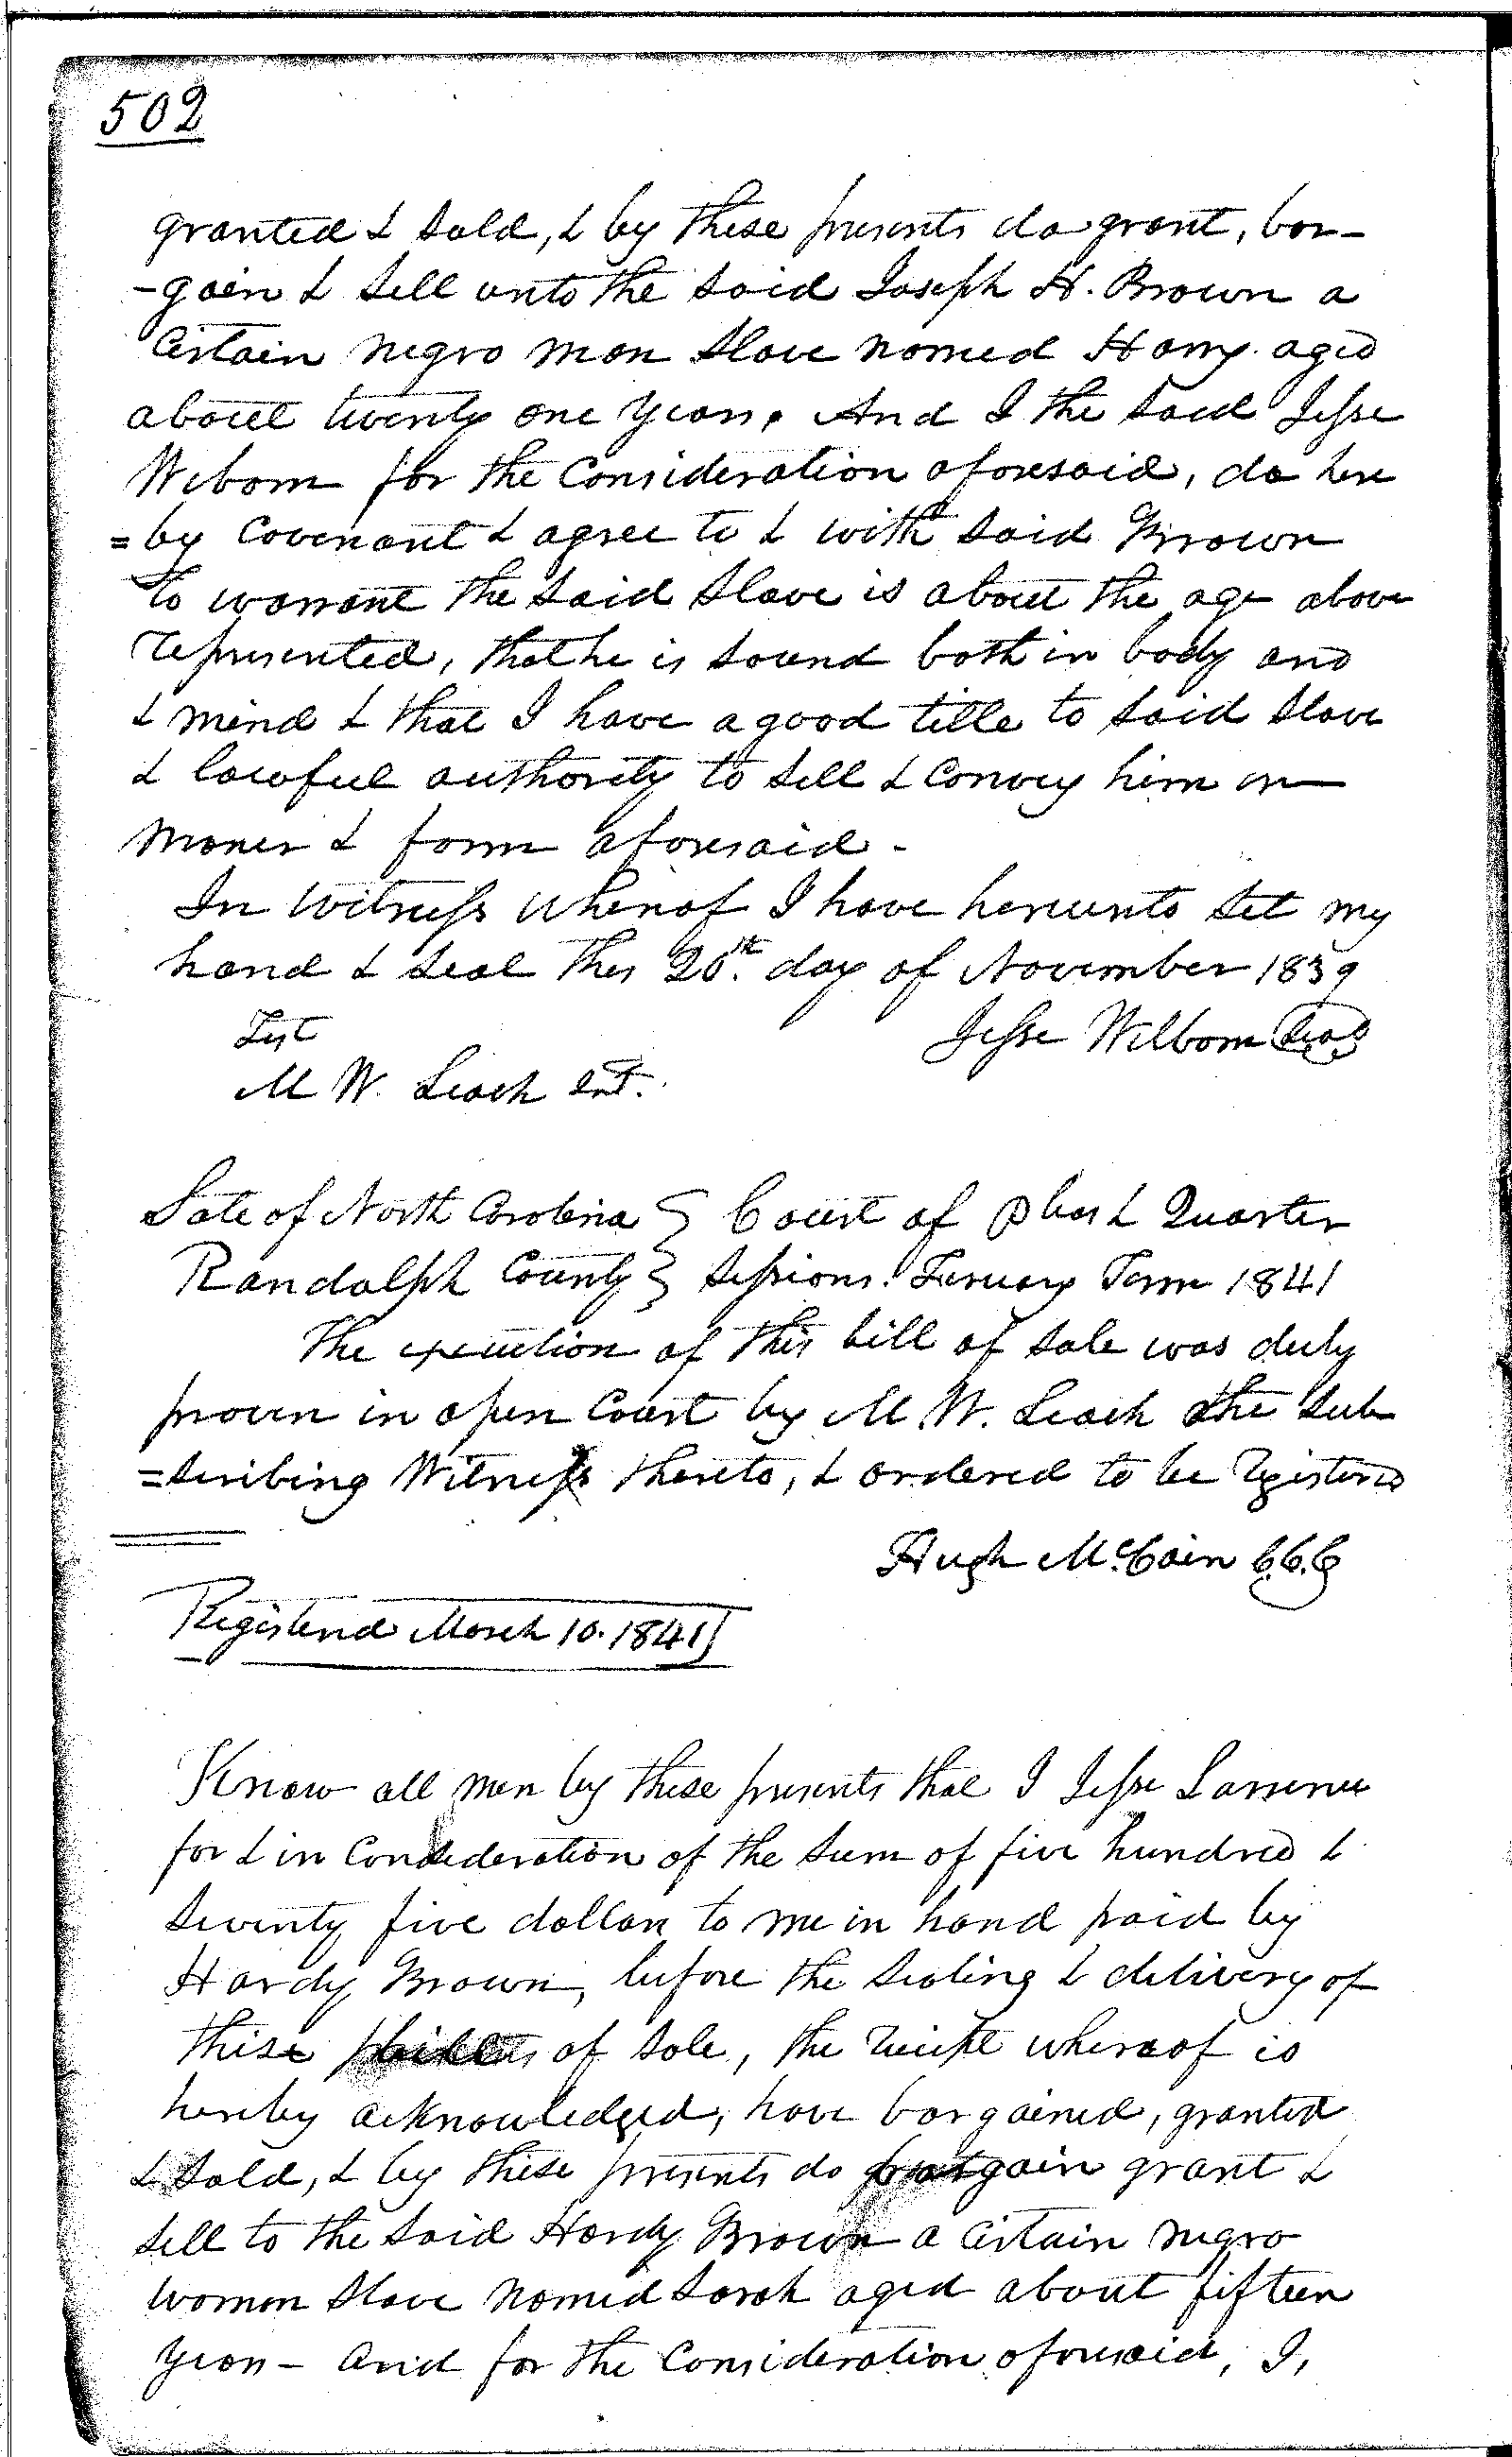 502
granted & sold, & by these presents do grant, bar-
-gain & sell unto the said Joseph H. Brown a
Certain negro man slave named Harry aged
about twenty one years. And I the said Jesse
Welborn for the Consideration aforesaid, do here
=by Covenant & agree to & with said Brown
to warrant the said slave is about the age above
represented, that he is sound both in body and
& mind & that I have a good title to said slave
& lawful authority to sell & Convey him in
maner & form aforesaid -
In Witness whereof I have hereunto set my
hand & seal this 20th. day of November 1839
Test
Jesse Welborn Seal
M W. Leach
State of North Carolina } Court of pleas & Quarter
Randolph County } Sessions. Feruary Term 1841
The execution of this bill of sale was duly
proven in open Court by M. W. Leach the sub
=scribing Witness thereto, & ordered to be registered
Hugh McCain C.C.C
Registered March 10. 1841
Know all men by these presents that I Jesse Larrence
for & in Consideration of the sum of five hundred &
seventy five dollars to me in hand paid by
Hardy Brown, before the sealing & delivery of
these of sale, the receipt whereof is
hereby acknowledged, have bargained, granted
& sold, & by these presents do bargain grant &
sell to the said Hardy Brown a Certain negro
woman slave named Sarah aged about fifteen
years - and for the Consideration aforesaid, I,